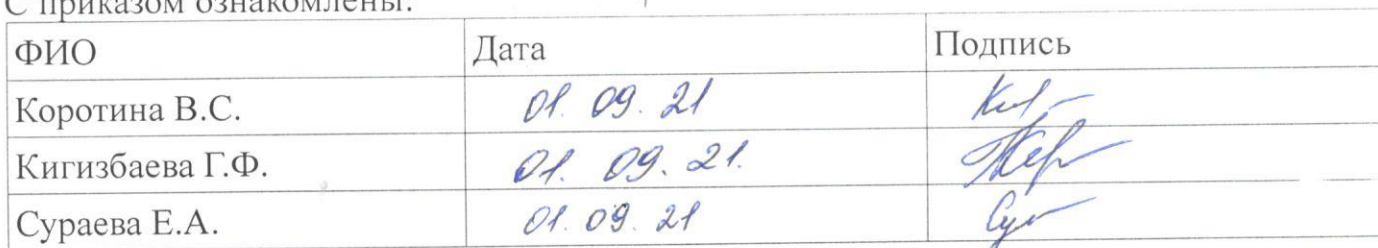 С приказом ознакомлены:
ФИО Дата Подпись
Коротина В.С. 01.09.21
Кигизбаева Г.Ф. 01.09.21.
Сураева Е.А. 01.09.21